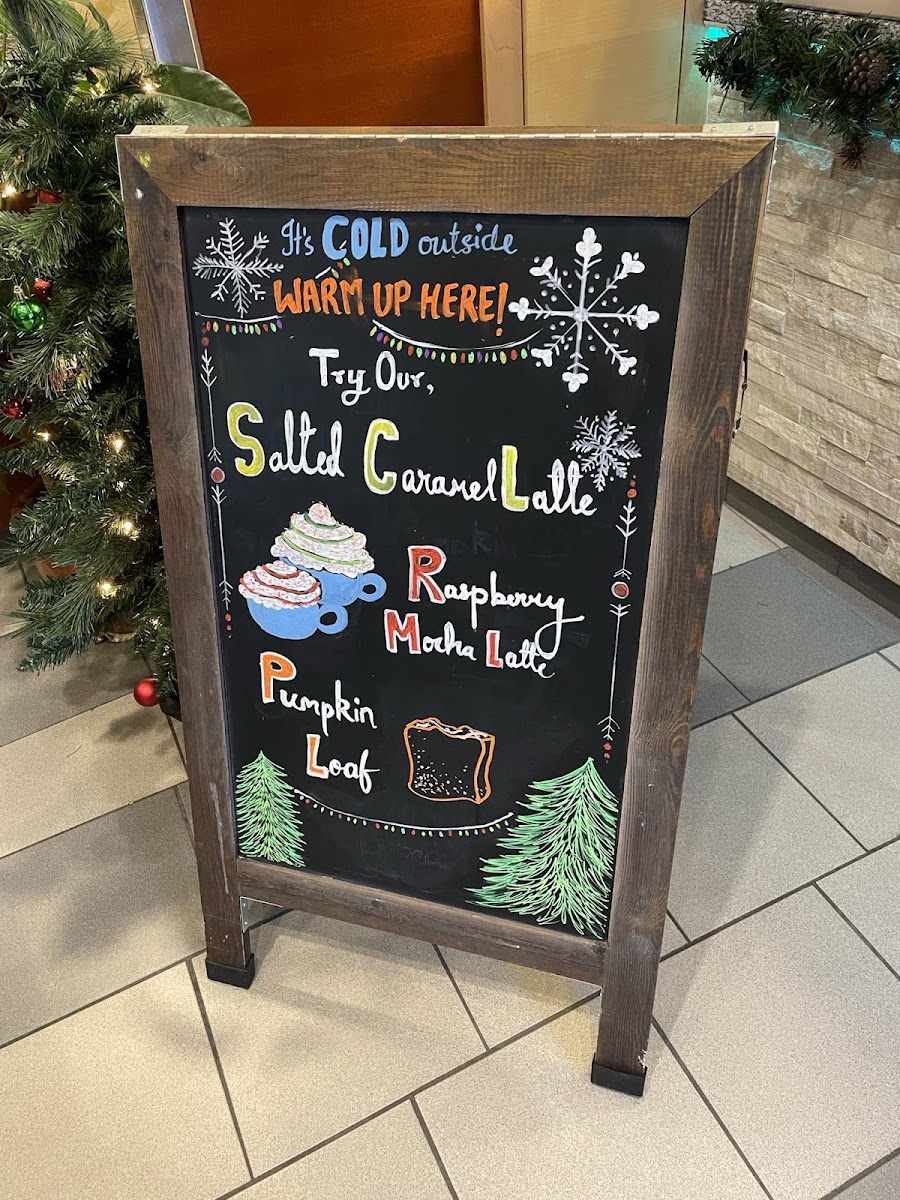 It's COLD outside
WARM UP HERE!
Try Our,
Salted Caramel Latte
Raspberry
Mocha Latte
Pumpkin
Loaf